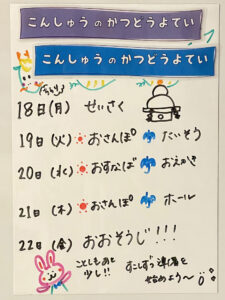 こんしゅうのかつどうよてい
こんしゅうのかつどうよてい
18日(月) せいさく
19日(火) おさんぽ たいそう
20日(水) おすなば おえかき
21日(木) おさんぽ ホール
22日(金) おおそうじ!!!
ことしもあと
少し!!
すこしずつ準備を
はじめよう〜